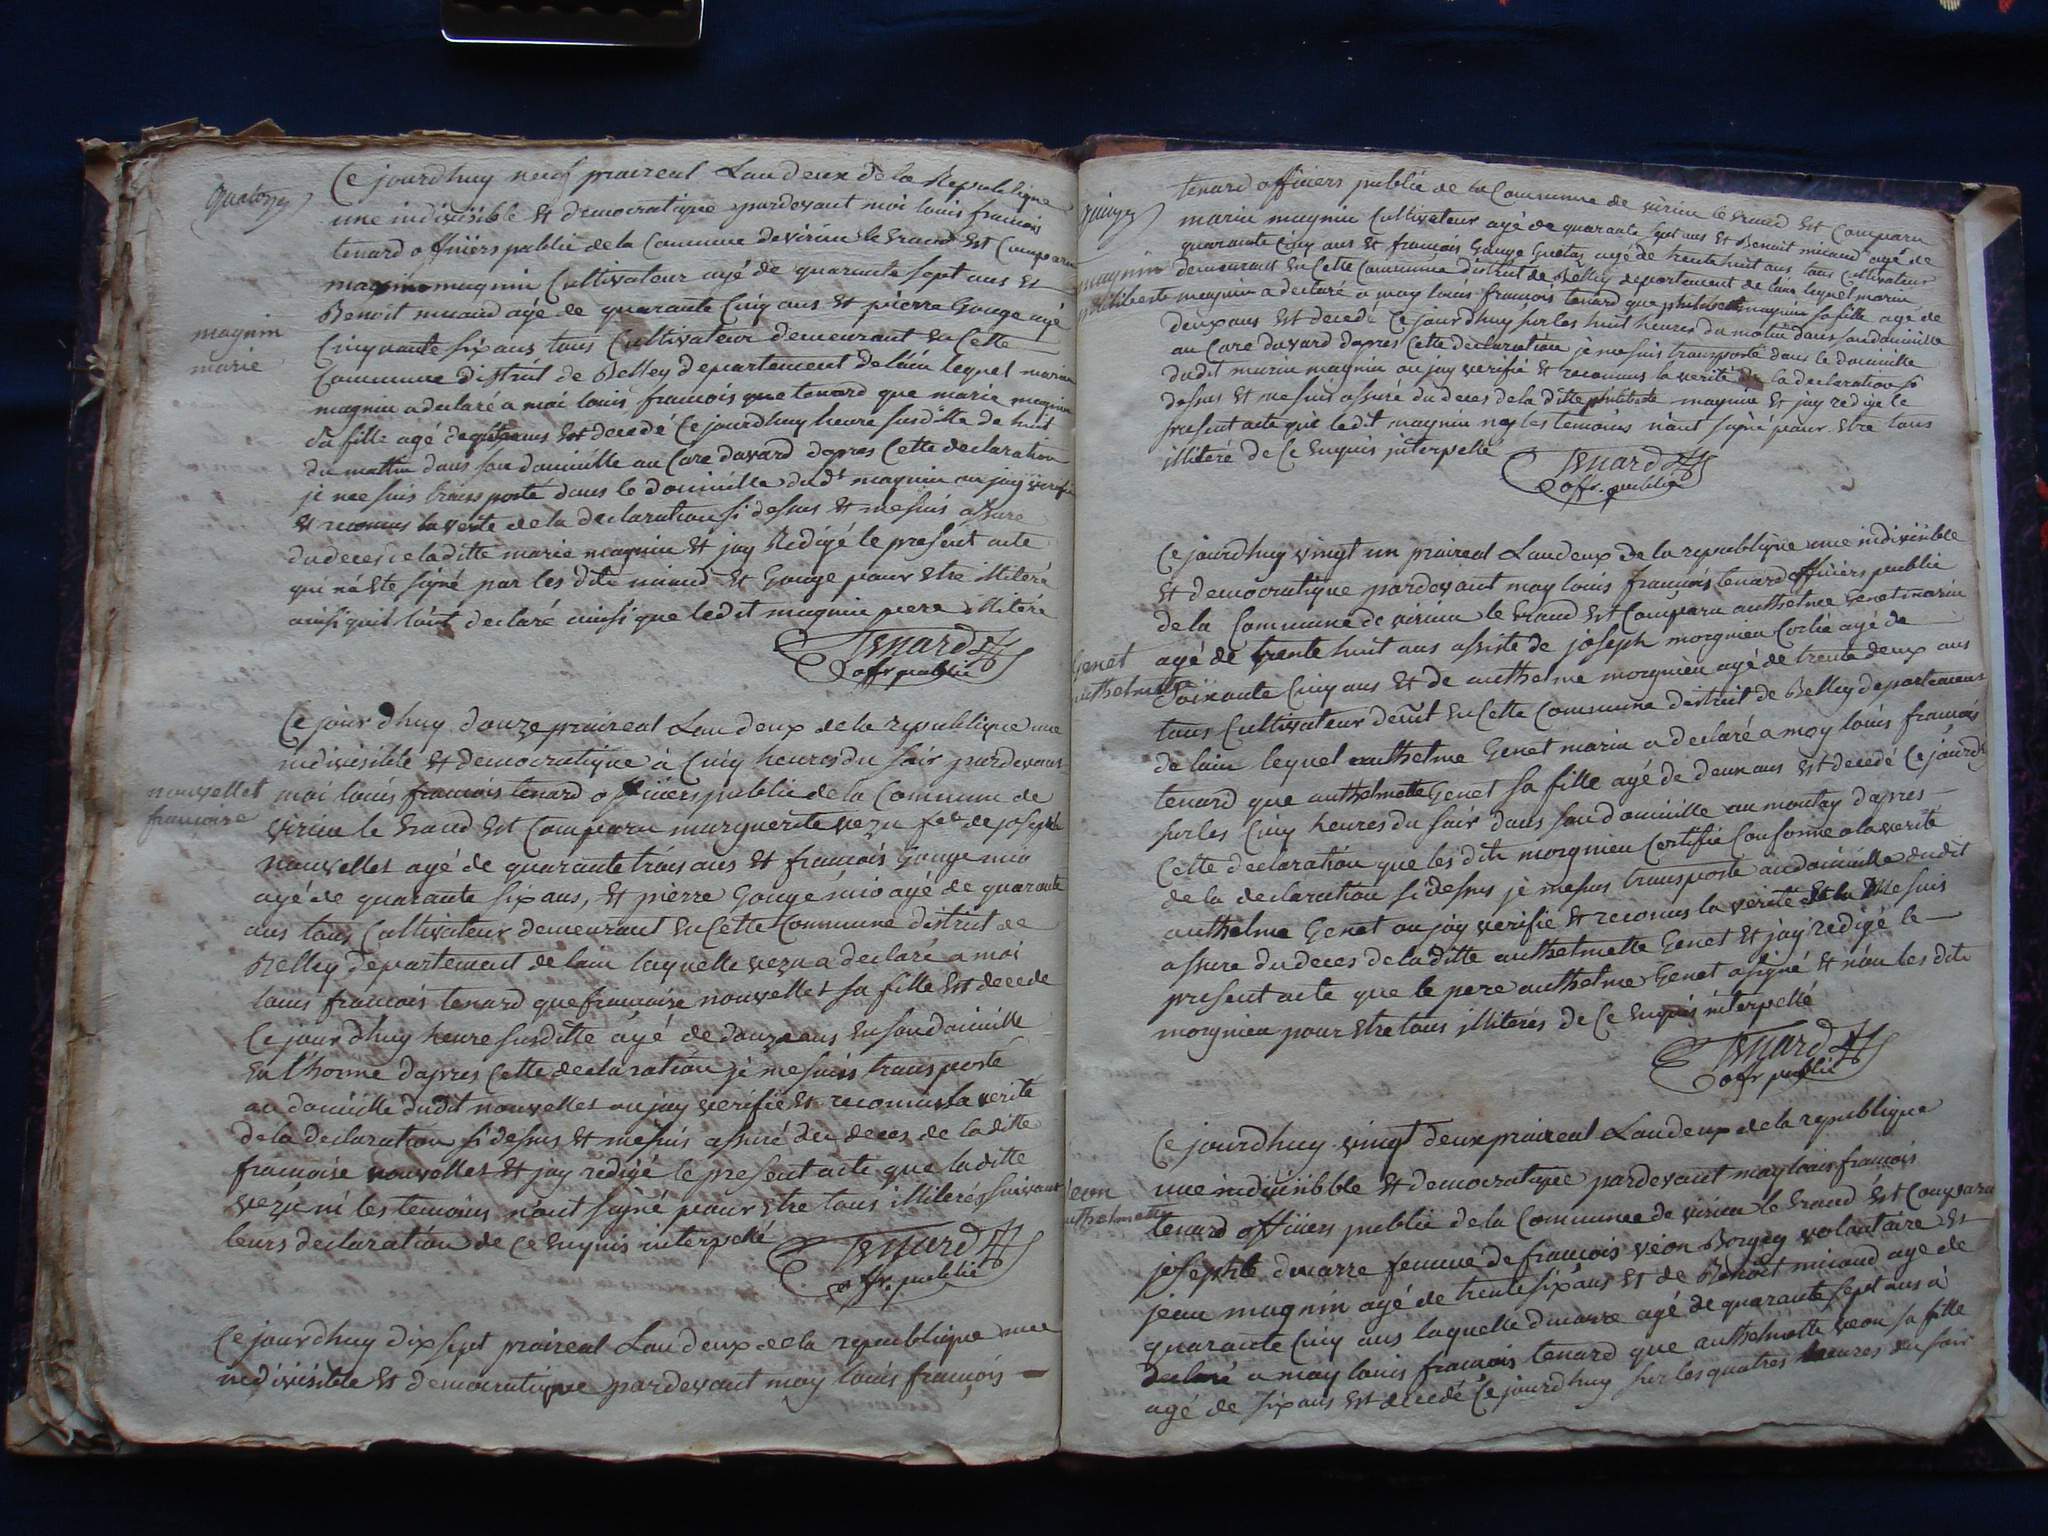 quatorze
Ce jourd huy neuf praireal Lan deux de la Republique
une indivisible Et democratique pardevant moi louis francois
tenard offiiers public de la Commune de virieu le Grand Est Comparu
magnin Cultivateur agé de quarante sept ans Et
Benoit micaud agé de quarante Cinq ans Et pierre Gouge agé
Cinquante six ans tous Cultivateur demeurant En Cette
magnin
marie
Commune distrit de Belley departement de lain lequel marin
magnin a declaré a moi louis francois tenard que marie magnin
sa fille agé de ans Est decedé Ce jourdhuy heure susditte de huit
du mattin dans son domicille au Care davard dapres Cette declaration
je me suis transporté dans le domicille dudt magnin ou jay verifié
Et reconnus la verite de la declaration si dessus Et me suis assure
du deces de laditte marie magnin Et jay Redigé le present acte
qui na Ete signé par les dits micaud Et Gouge pour Etre illiteré
ainsi quil lont declaré ainsi que ledit magnin pere illiteré
Tenard
offr public
Ce jour dhuy douze praireal Lan deux de la republique une
indivisible Et democratique à Cinq heures du soir pardevant
nouvellet
francoise
moi louis francois tenard offiiers public de la Commune de
virieu le Grand Est Comparu marguerite vezu fe de joseph
nouvellet agé de quarante trois ans Et francois Gouge mio
agé de quarante six ans, Et pierre Gouge mio agé de quarante
ans tous Cultivateur demeurant En Cette Commune distrit de
Belley departement de lain laquelle vezu a declaré a moi
louis francois tenard que francoise nouvellet sa fille Est decede
Ce jour dhuy heure susditte agé de douze ans En son domicille
En l'horme dapres Cette declaration je me suis transporté
au domicille dudit nouvellet ou jay verifié Et reconnus la verité
de la declaration si dessus Et me suis assuré du deces de laditte
francoise nouvellet Et jay redigé le present acte que laditte
vezu ni les temoins nont signé pour Etre tous illiterés suivant
leurs declaration de Ce Enquis interpellé
Tenard
offr. public
Ce jourdhuy dix sept praireal Lan deux de la republique une
indivisible Et democratique pardevant moy louis francois
quinze
tenard offiiers public de la Commune de virieu le Grand Est Comparu
marin magnin Cultivateur agé de quarante sept ans Et Benoit micaud agé de
quarante Cinq ans Et francois Gouge agé de trente huit ans tous Cultivateur
magnin
philiberte
demeurant En Cette Commune distrit de Belley departement de lain lequel marin
magnin a declaré a moy louis francois tenard que philiberte magnin sa fille agé de
deux ans Est decedé Ce jourdhuy sur les huit heures du matin dans son domicille
au Care davard dapres Cette declaration je me suis transporté dans le domicille
dudit marin magnin ou jay verifié Et reconnus la verité de la declaration si
dessus Et me suis assuré du deces de la ditte philiberte magnin Et jay redigé le
present acte que ledit magnin ny les temoins nont signé pour Etre tous
illiteré de Ce Enquis interpellé
Tenard
offr. public
Ce jourdhuy vingt un praireal Lan deux de la republique une indivisible
Et democratique pardevant moy louis francois tenard offiiers public
de la Commune de virieu le Grand Est Comparu anthelme Genet marin
Genet
anthelmette
agé de trente huit ans assiste de joseph morgnieu Cochié agé de
Soixante Cinq ans Et de anthelme morgnieu agé de trente deux ans
tous Cultivateur demt En Cette Commune distrit de Belley departement
de lain lequel anthelme Genet marin a declaré a moy louis francois
tenard que anthelmette Genet sa fille agé de deux ans Est decedé Ce jourdh
sur les Cinq heures du soir dans son domicille au montay dapres
Cette declaration que les dits morgnieu Certifié Conforme a la verité
de la declaration si dessus je me suis transporté au domicille dudit
anthelme Genet ou jay verifié Et reconnus la verité Et me suis
assure du deces de laditte anthelmette Genet Et jay redigé le
present acte que le pere anthelme Genet a signé Et non les dits
morgnieu pour Etre tous illiterés de Ce Enquis interpellé
Tenard
offr public
Ce jourdhuy vingt deux praireal Lan deux de la republique
une indivisibble Et democratique pardevant moy louis francois
veon
anthelmette
tenard offiiers public de la Commune de virieu le Grand Est Comparu
josephte ducarre femme de francois véon Borgey volontaire Et
jean magnin agé de trente six ans Et de Benoit micaud age de
quarante Cinq ans laquelle ducarre agé de quarante sept ans à
declaré a moy louis francois tenard que anthelmette veon sa fille
agé de six ans Est decedé Ce jourdhuy sur les quatres heures du soir